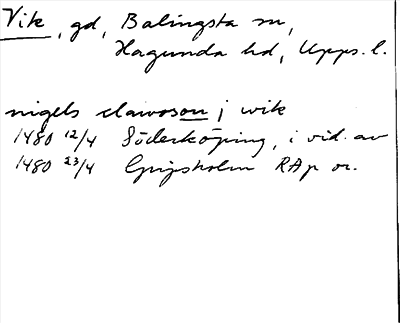 Vik, gd, Balingsta sn,
Hagunda hd, Upps. l.
nigels clawoson j wik
1480 12/4 Söderköping, i vid. av
1480 23/4 Gripsholm RAp or.